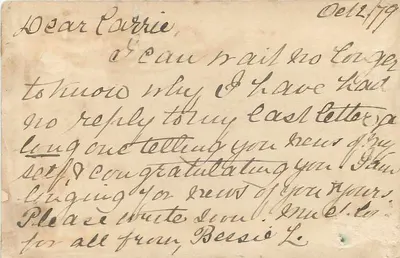 Oct 12/79
Dear Carrie,
I can wait no longer
to know why I have had
no reply to my last letter, a
long one telling you news of my
self & congratulating you. I am
longing for news of you & yours.
Please write soon. Much lo-
for all from, Bessie L.